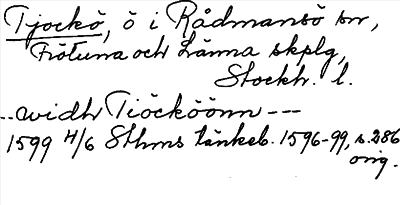 Tjockö, ö i Rådmansö sn,
Frötuna och Länna skplg,
Stockh. l.
..widh Tiöcköönn ---
1599 4/6 Sthms tänkeb. 1596-99, s. 286
orig.